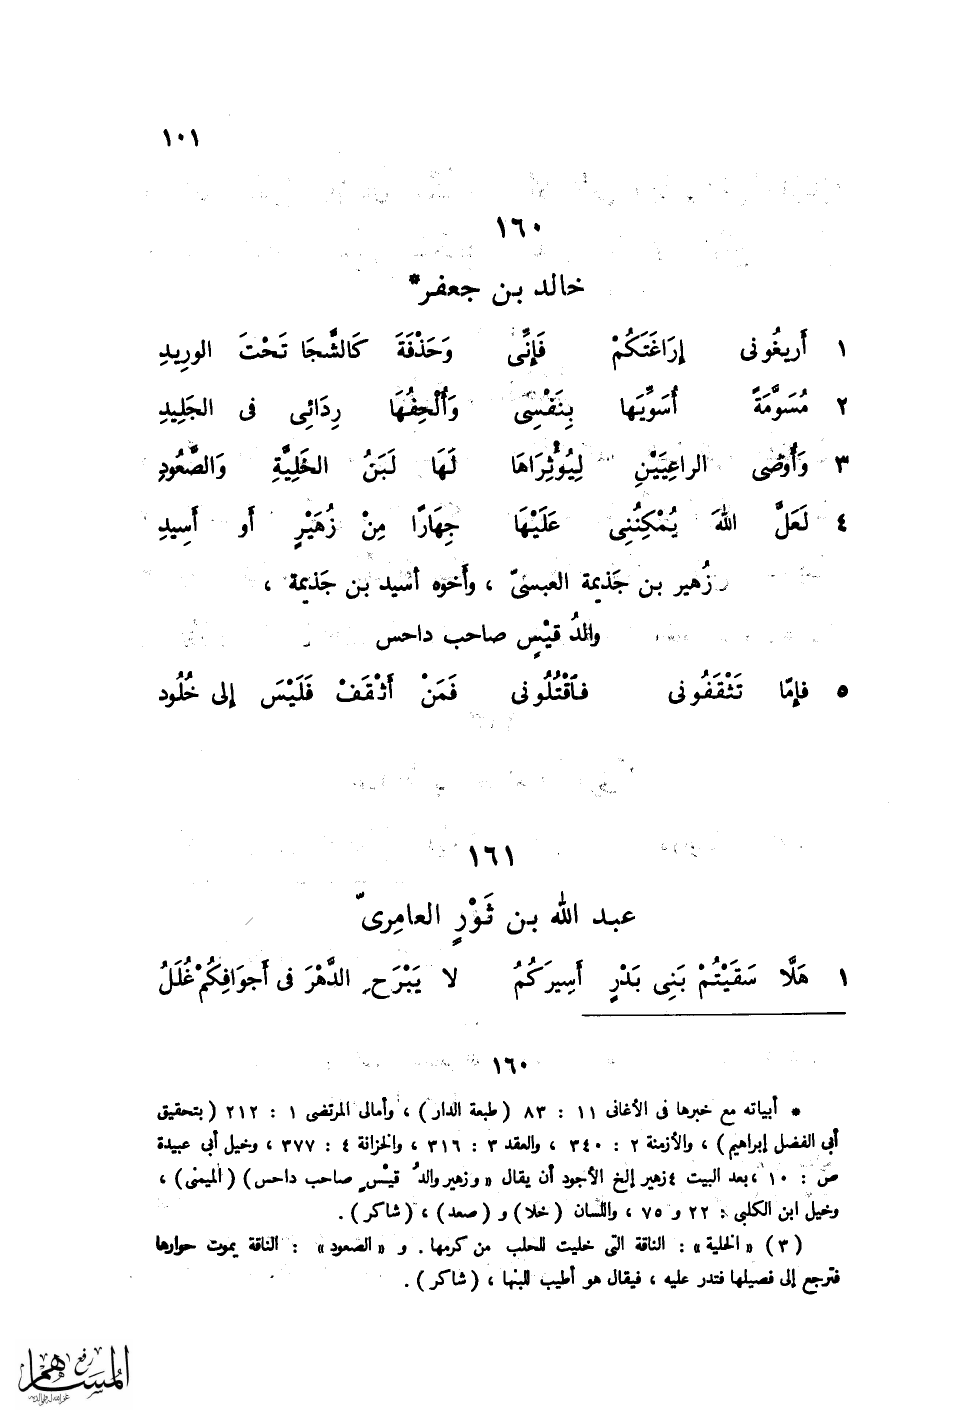 ١٠١
١٦٠
خالد بن جعفر*
١ أَرِيغُونى إرَاغَتَكُمْ فَإنِّى وَحَذْفَةَ كَالشَّجَا تَحْتَ الورِيدِ
٢ مُسَوَّمَةً أُسَوِّيَها بِنَفْسِى وَأُلْحِفُهَا رِدَائِى فى الجَلِيدِ
٣ وَأُوصِى الراعِيَيْنِ لِيُؤْثِرَاهَا لَهَا لَبَنُ الخَلِيَّةِ وَالصَّعُودِ
٤ لَعَلَّ اللهَ يُمْكِنُنِى عَلَيْهَا جِهَارًا مِنْ زُهَيْرٍ أَو أَسِيدِ
زُهير بن جَذيمة العبسىّ ، وأَخوه أسيد بن جَذيمة ،
والدُ قيْسٍ صاحب داحس
٥ فإمّا تَثْقَفُونى فٱقْتُلُونى فَمَنْ أَثْقَفْ فَلَيْسَ إلى خُلُود
١٦١
عبد الله بن ثَوْرٍ العامِرىّ
١ هَلَّا سَقَيْتُمْ بَنِى بَدْرٍ أَسِيرَكُمُ لا يَبْرَحِ الدَّهْرَ فى أَجوَافِكُمْ غُلَلُ
١٦٠
* أبياته مع خبرها فى الأغانى ١١ : ٨٣ (طبعة الدار) ، وأمالى المرتضى ١ : ٢١٢ (بتحقيق
أبى الفضل إبراهيم) ، والأزمنة ٢ : ٣٤٠ ، والعقد ٣ : ٣١٦ ، والخزانة ٤ : ٣٧٧ ، وخيل أبى عبيدة
ص : ١٠ ، بعد البيت ٤ زهير إلخ الأجود أن يقال « وزهير والدُ قيْسٍ صاحب داحس) (الميمنى) ،
وخيل ابن الكلبى : ٢٢ و ٧٥ ، واللسان (خلا) و (صعد) ، (شاكر) .
(٣) « الخلية » : الناقة التى خليت للحلب من كرمها . و « الصعود » : الناقة يموت حوارها
فترجع إلى فصيلها فتدر عليه ، فيقال هو أطيب للبنها ، (شاكر) .
رفع
المساهم